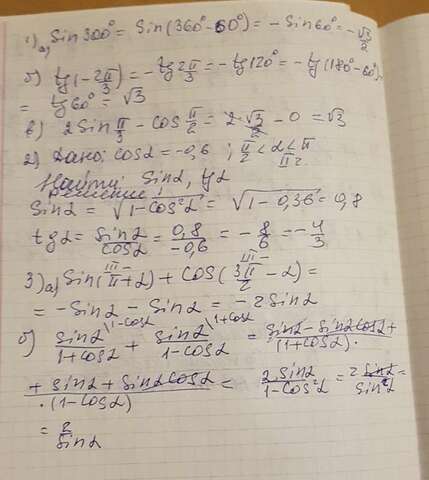 1) а) Sin 300° = Sin(360° - 60°) = - Sin 60° = -√3/2
б) tg(-2π/3) = - tg 2π/3 = - tg 120° = - tg (180° - 60°)
= tg 60° = √3
в) 2 Sin π/3 - cos π/2 = 2·√3/2 - 0 = √3
2) Дано: cos α = -0,6 ; π/2 < α < π
II г.
Найти: Sin α, tg α
Решение:
Sin α = √(1 - cos²α) = √(1 - 0,36) = 0,8
tg α = sin α/cos α = 0,8/-0,6 = -8/6 = -4/3
3) а) Sin(π + α) + cos(3π/2 - α) =
= - Sin α - Sin α = - 2 Sin α
б) sin α\1-cos α/1+cos α + sin α\1+cos α/1-cos α = sin α - sin α cos α +/(1+cos α)·
+ sin α + sin α cos α/·(1-cos α) = 2 sin α/1-cos²α = 2 sin α/sin²α =
= 2/sin α